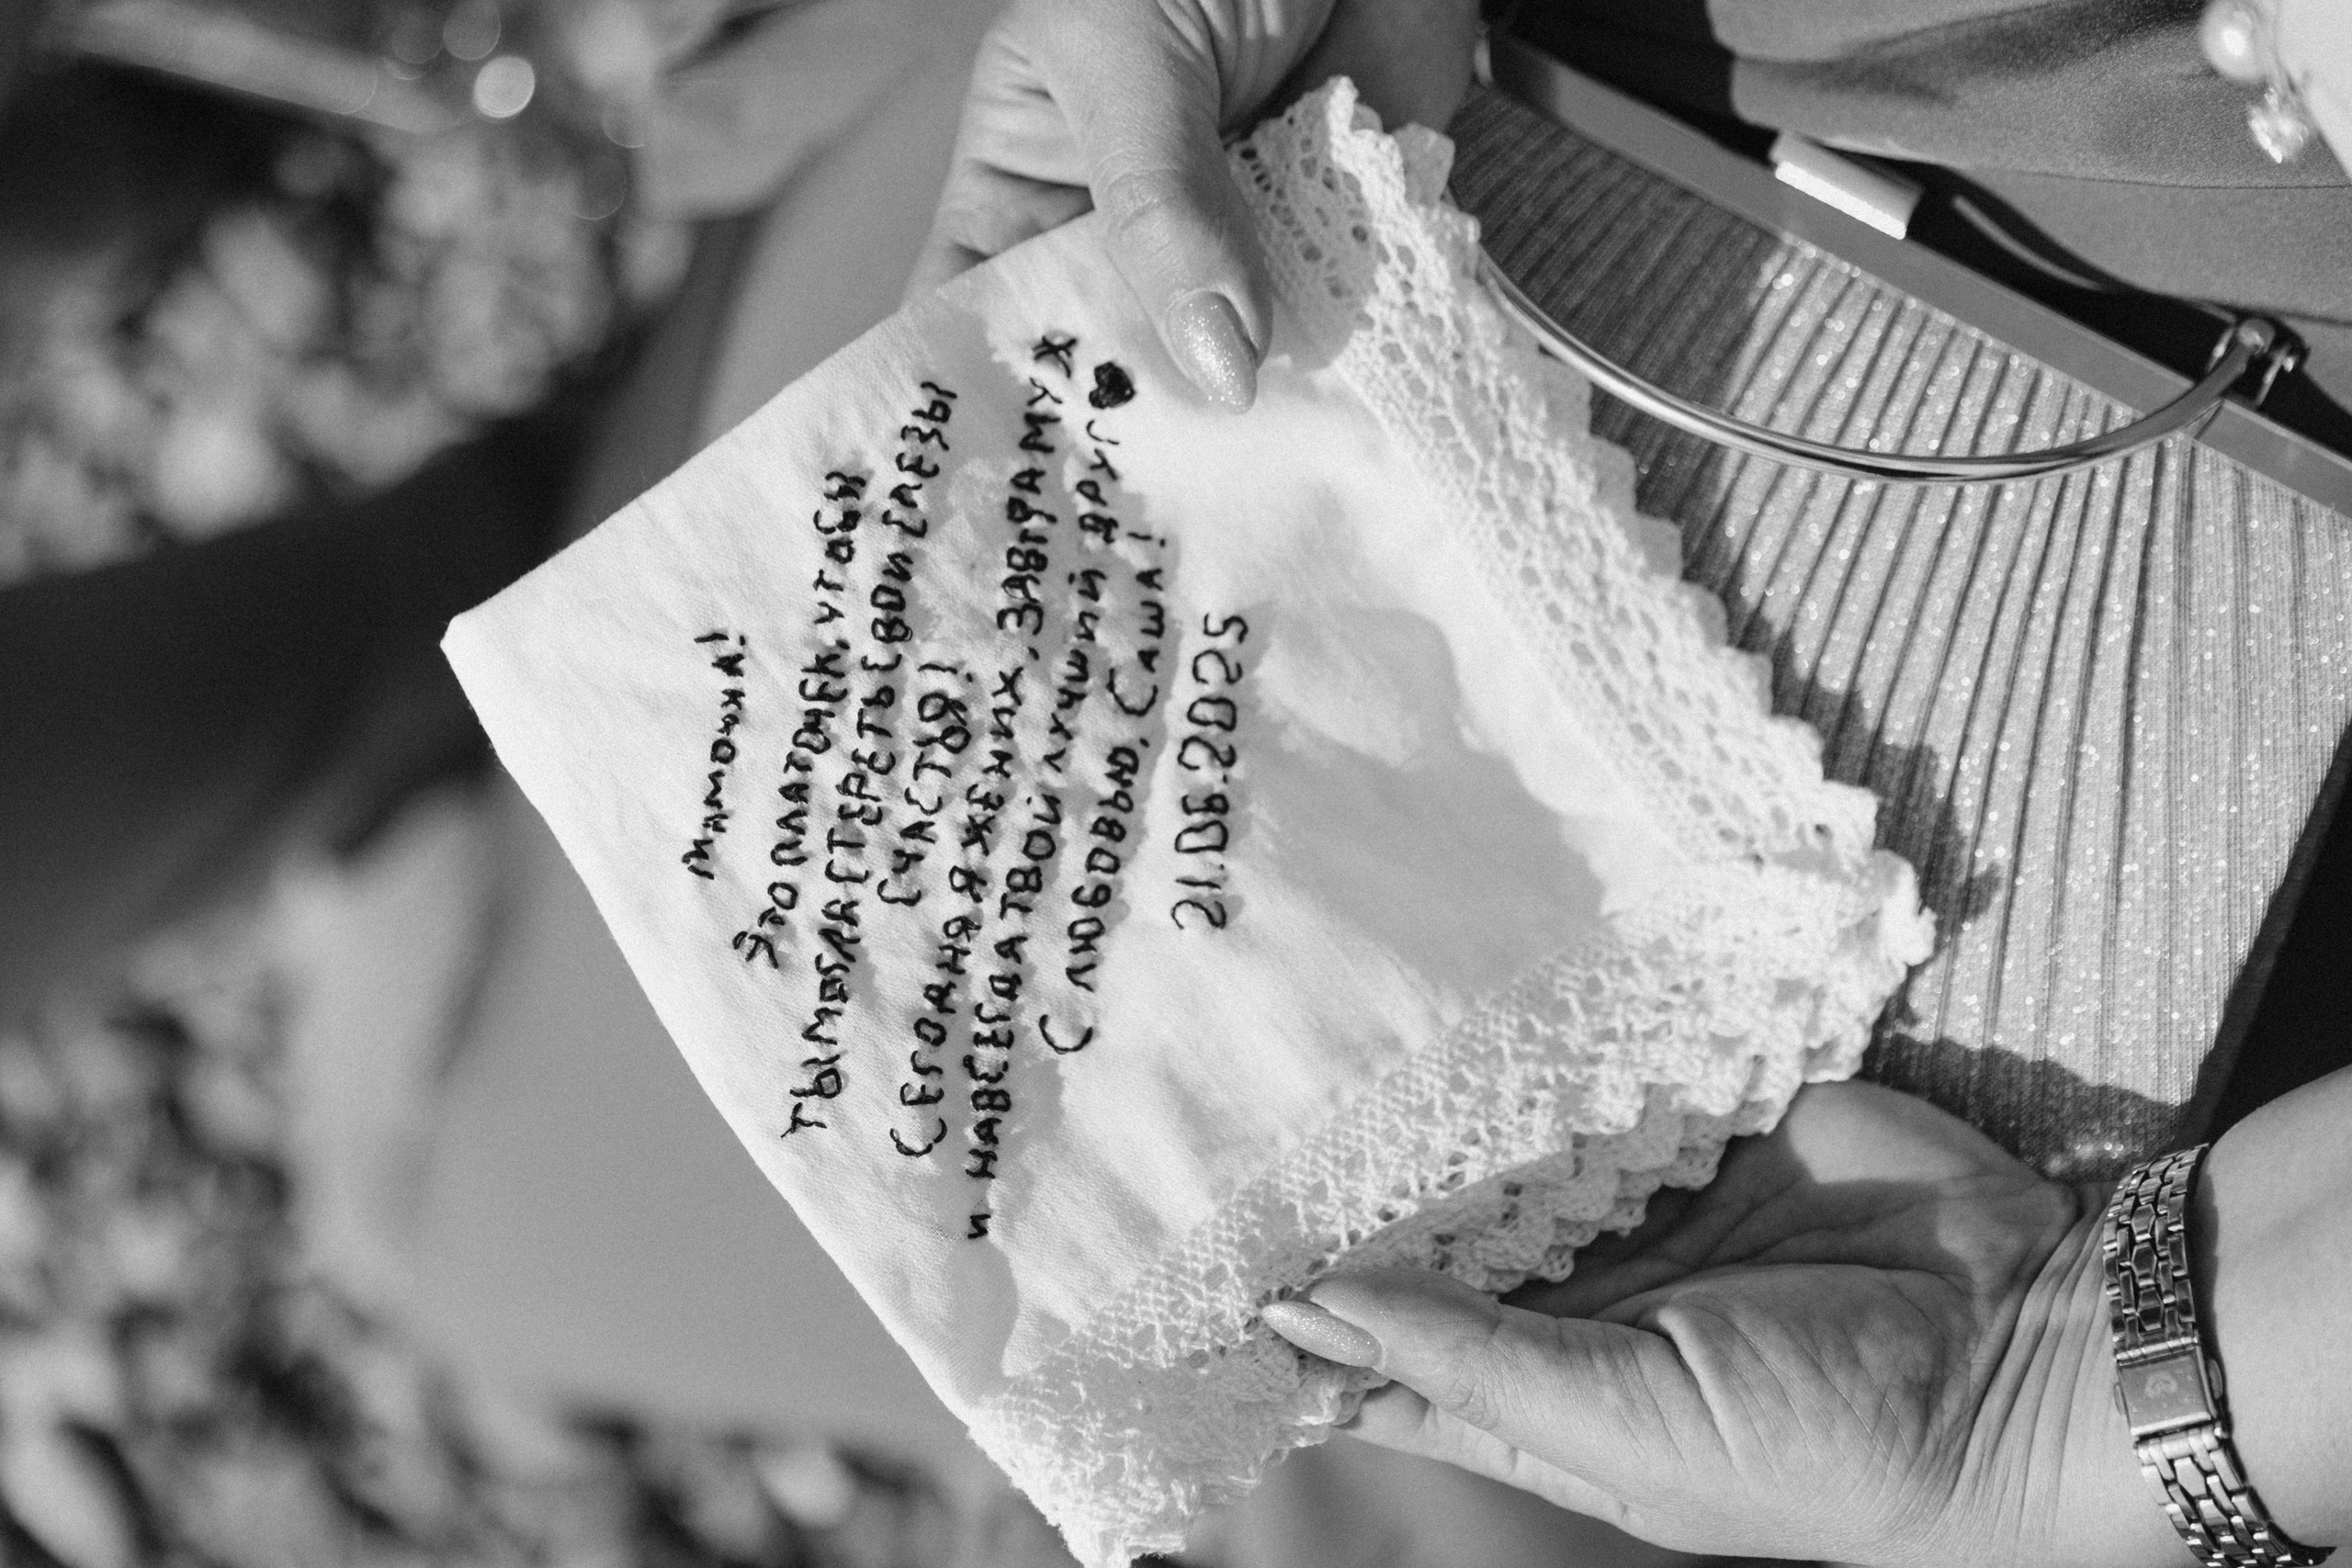 Мамочка!
Это платочек, чтобы
ты могла стереть свои слезы
счастья!
Сегодня я жених, завтра муж
и навсегда твой лучший друг ♥
С любовью, Саша!
21.06.2025